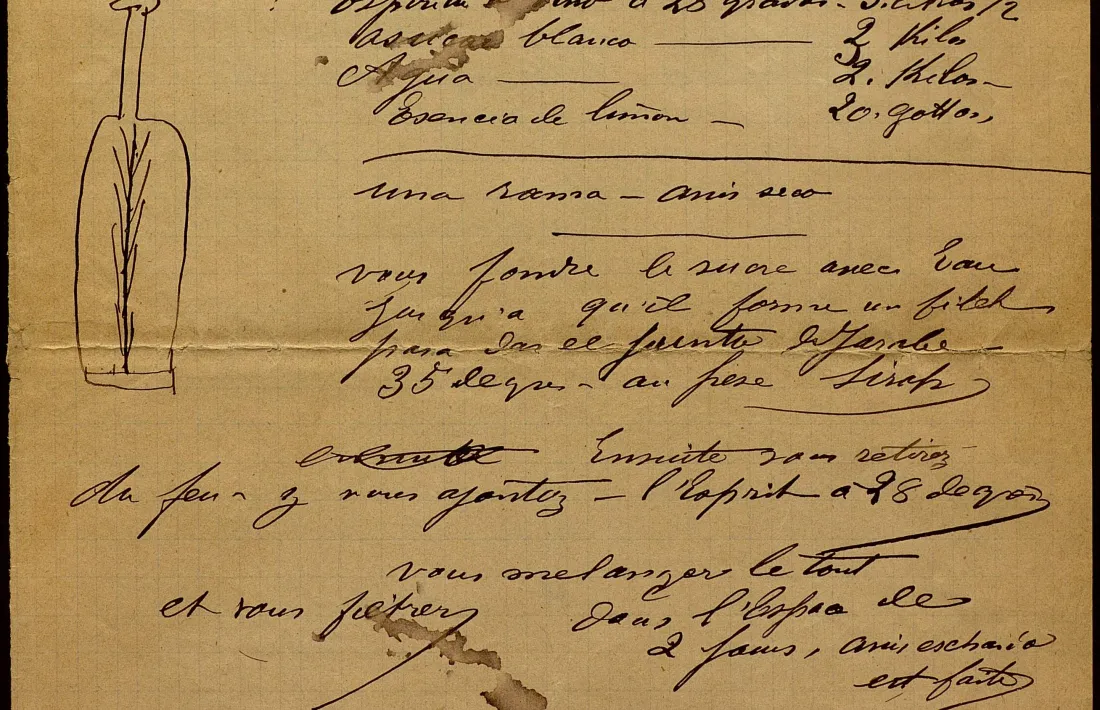 a 28 grados - 3. litros 1/2
azucar blanco — 2 Kilos
Agua — 2. Kilos -
Esencia de limon — 20. gottas,
una rama - anis seco
vous fondre le sucre avec Eau
jusqu'a qu'il forme un filet
para dar el puntto de Jarabe -
35 degres - au pese Sirop
Ensuite vous retirez
du feu - y vous ajoutez - l'Esprit a 28 degrés
vous melanger le tout
et vous filtrer
dans l'Espac de
2 Jours, anis eschario
est faite